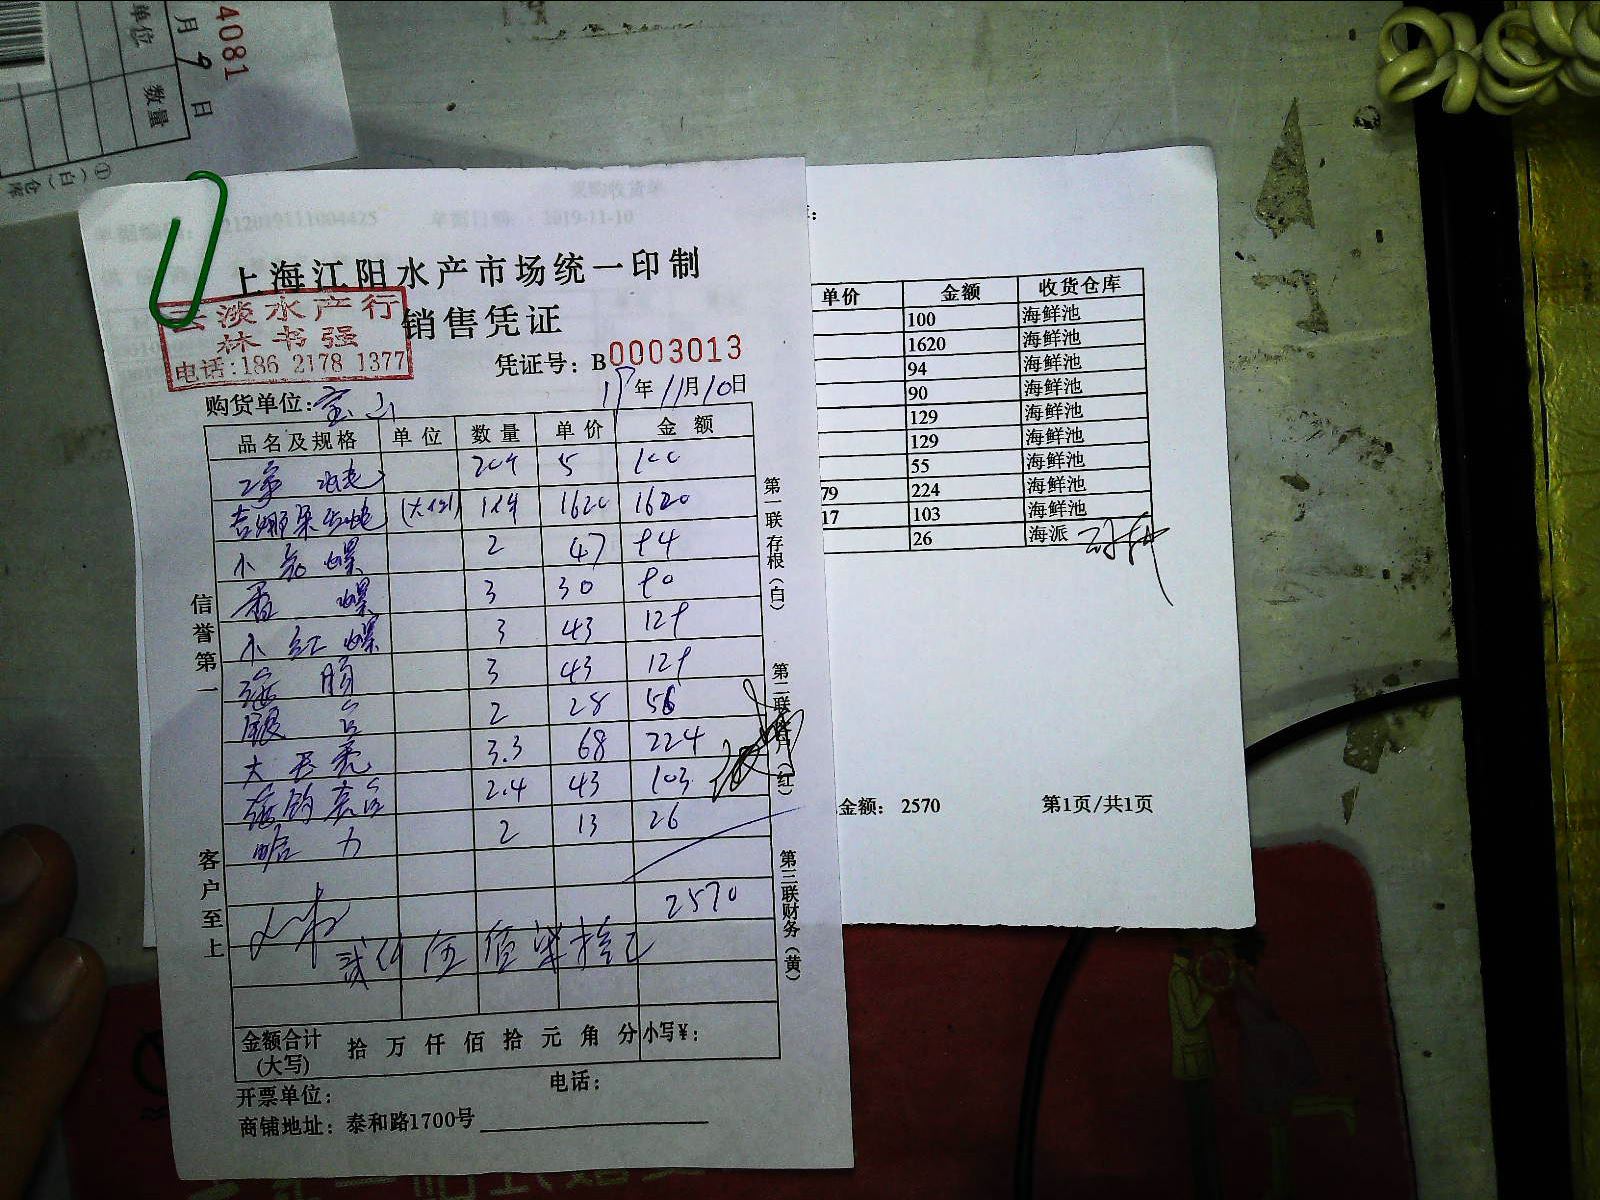 4081
月 9 日
单位
数量
①(白)仓库
采购收货单
212019111004425 单据日期 2019-11-10
上海江阳水产市场统一印制
销售凭证
云淡水产行
林书强
电话:186 2178 1377
凭证号：B0003013
购货单位：宝山
19年11月10日
品名及规格 单位 数量 单价 金额
20斤 5 100
1斤 1620 1620
小 螺 2 47 94
螺 3 30 90
小红螺 3 43 129
海肠 3 43 129
2 28 56
3.3 68 224
2.4 43 103
蛤 2 13 26
2570
贰仟伍佰柒拾元
金额合计
(大写)
拾 万 仟 佰 拾 元 角 分 小写¥：
开票单位： 电话：
商铺地址：泰和路1700号
信誉第一
客户至上
第一联存根(白)
第二联客户(红)
第三联财务(黄)
单价 金额 收货仓库
100 海鲜池
1620 海鲜池
94 海鲜池
90 海鲜池
129 海鲜池
129 海鲜池
55 海鲜池
79 224 海鲜池
17 103 海鲜池
26 海派
金额： 2570 第1页/共1页